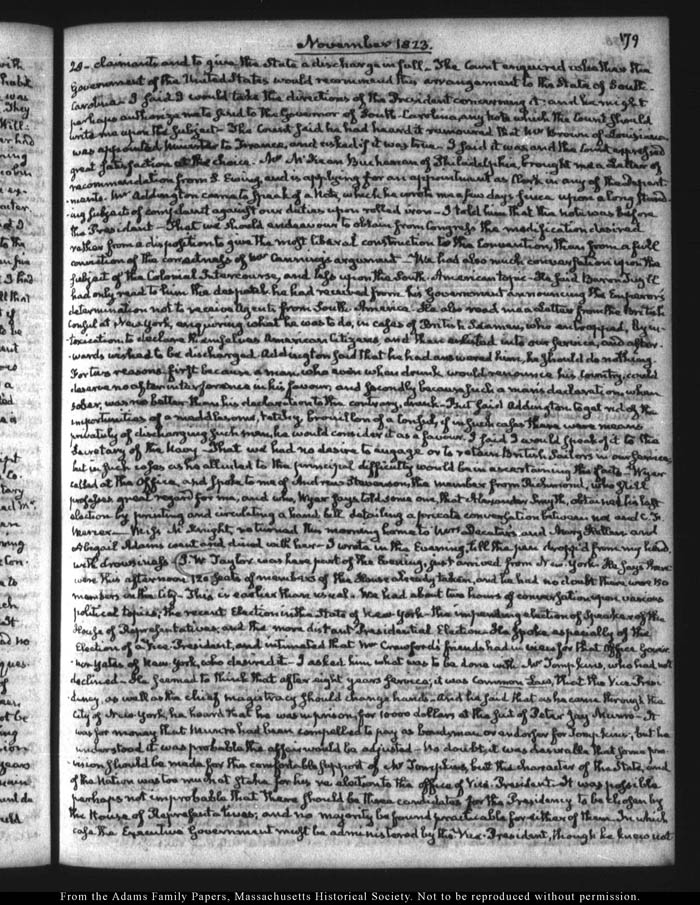 November 1823.
179
28- claimants and to give the State a discharge in full_ The Count enquired whether the
Government of the United States would recommend this arrangement to the State of South-
Carolina_ I said I would take the directions of the President concerning it; and he might
perhaps authorize me to send to the Governor of South-Carolina, any note which the Count should
write me upon the subject_ The Count said he had heard it rumoured that Mr Brown of Louisiana
was appointed Minister to France, and asked if it was true_ I said it was and the Count expressed
great satisfaction at the choice. Mr McKean Buchanan of Philadelphia brought me a Letter of
recommendation from S. Ewing, and is applying for an appointment as Clerk in any of the Depart-
-ments. Mr Addington came to speak of a Note, which he wrote me a few days since upon a long stand-
-ing subject of complaint against our duties upon rolled iron_ I told him that the note was before
the President_ That we should endeavour to obtain from Congress the modification desired
rather from a disposition to give the most liberal construction to the Convention, than from a full
conviction of the correctness of Mr Canning's argument_ We had also much conversation upon the
subject of the Colonial Intercourse, and less upon the South-American topic_ He said Baron Tuyll
had only read to him the despatch he had received from his Government announcing the Emperor's
determination not to receive Agents from South America. He also read me a Letter from the British
Consul at New York, enquiring what he was to do, in cases of British Seamen, who entrapped, by in-
-toxication to declare themselves American Citizens, and then enlisted into our service, and after-
-wards wished to be discharged. Addington said that he had answered him, he should do nothing.
For two reasons_ first because a man who even when drunk would renounce his Country, could
deserve no after interference in his favour; and secondly because such a man's declaration, when
sober, was no better than his declaration to the contrary, drunk_ But said Addington to get rid of the
importunities of a meddlesome, brouillon of a Consul, if in such cases there were means
privately of discharging such men, he would consider it as a favour. I said I would speak of it to the
Secretary of the Navy_ That we had no desire to engage or to retain British Sailors in our service
but in such cases as he alluded to the principal difficulty would be in ascertaining the facts_ Wyer
called at the Office, and spoke to me of Andrew Stevenson, the member from Richmond, who still
professes great regard for me, and who, Wyer says told some one, that Alexander Smyth, obtained his last
election by printing and circulating a hand bill detailing a private conversation between me and C. F.
Mercer_ Miss McKnight, returned this morning home to Mrs Decatur's, and Mary Hellen and
Abigail Adams went and dined with her_ I wrote in the Evening, till the pen dropp'd from my hand,
with drowsiness (J. W. Taylor was here part of the Evening, just arrived from New York. He says there
were this afternoon 120 seats of members of the House already taken, and he had no doubt there were 150
members in the City_ This is earlier than usual_ We had about two hours of conversation upon various
political topics; the recent Election in the State of New York_ the impending election of Speaker of the
House of Representatives; and the more distant Presidential Election_ He spoke especially of the
Election of a Vice-President, and intimated that Mr Crawford's friends had in view for that Office Gover-
-nor Yates of New York, who desired it_ I asked him what was to be done with Mr Tompkins, who had not
declined_ He seemed to think that after eight years service, it was Common Law, that the Vice-Presi-
-dency, as well as the chief magistracy should change hands_ And he said that as he came through the
City of New-York, he heard that he was in prison for 10000 dollars at the suit of Peter Jay Munro_ It
was for money that Munro had been compelled to pay as bondsman or endorser for Tompkins; but he
understood it was probable the affair would be adjusted_ No doubt, it was desirable that some pro-
-vision should be made for the comfortable support of Mr Tompkins, but the character of the State, and
of the Nation was too much at stake for his re-election to the office of Vice-President_ It was possible
perhaps not improbable that there should be three candidates for the Presidency to be chosen by
the House of Representatives; and no majority be found practicable for either of them. In which
case the Executive Government must be administered by the Vice-President, though he knew not
From the Adams Family Papers, Massachusetts Historical Society. Not to be reproduced without permission.